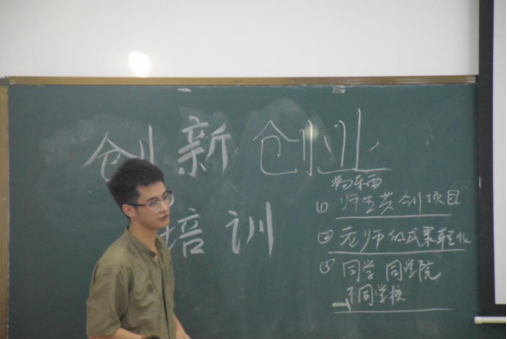 创新创业
培训
购东西
① 师生共创项目
② 老师的成果转化
③ 同学 同学院
不同学校